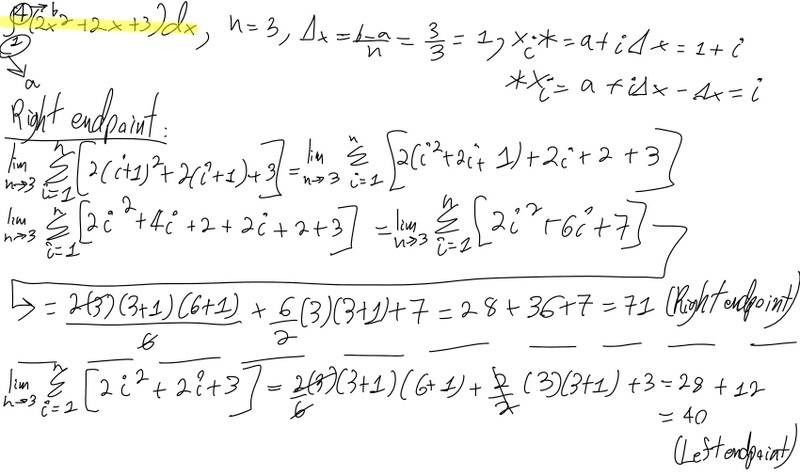 ∫₁⁴ (2x² + 2x + 3) dx, n = 3, Δx = (b-a)/n = 3/3 = 1, xᵢ* = a + iΔx = 1 + i
b
a
*xᵢ = a + iΔx - Δx = i
Right endpoint:
lim n→3 Σ i=1 n [2(i+1)² + 2(i+1) + 3] = lim n→3 Σ i=1 n [2(i² + 2i + 1) + 2i + 2 + 3]
lim n→3 Σ i=1 n [2i² + 4i + 2 + 2i + 2 + 3] = lim n→3 Σ i=1 n [2i² + 6i + 7]
→ = 2(3)(3+1)(6+1)/6 + 6/2 (3)(3+1) + 7 = 28 + 36 + 7 = 71 (Right endpoint)
lim n→3 Σ i=1 n [2i² + 2i + 3] = 2(3)/6 (3+1)(6+1) + 2/2 (3)(3+1) + 3 = 28 + 12
= 40
(Left endpoint)